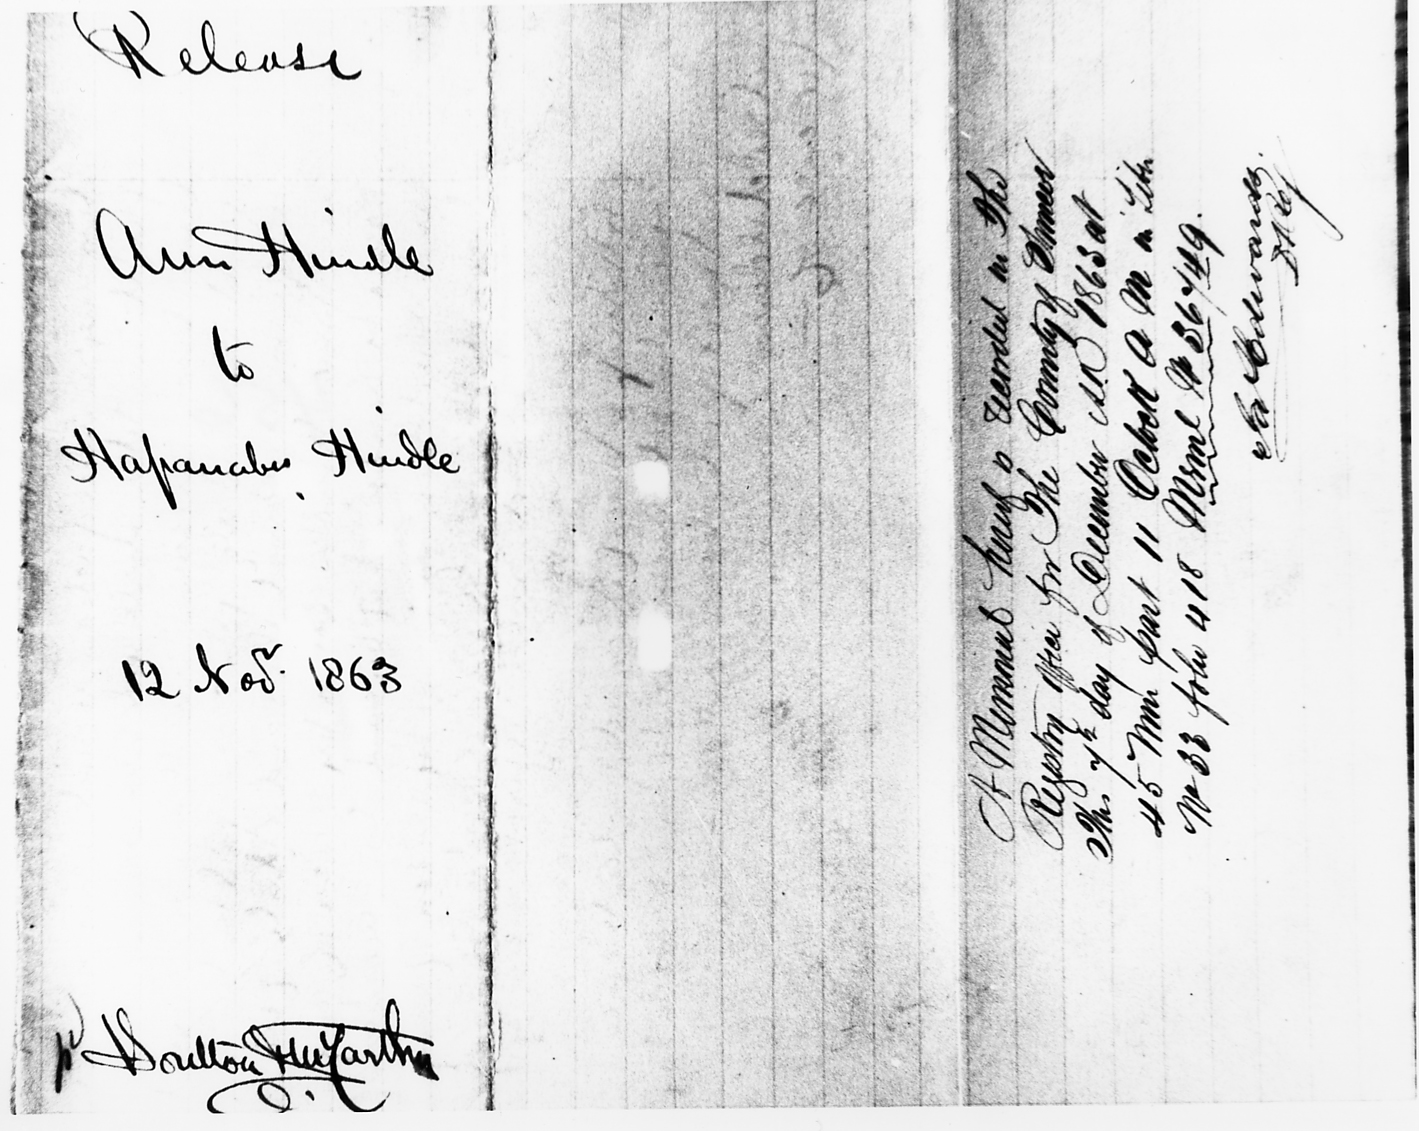 Release
Ann Hindle
to
Hapanabus Hindle
12 Novr. 1863
Boulton McCarthy
A Memorial hereof is recorded in the
Registry Office for the County Simcoe
This 7th day of December A.D. 1863 at
45 Min past 11 Oclock A M in Liber
No 33 folio 418 Meml No 36749.
Edwards
D Reg